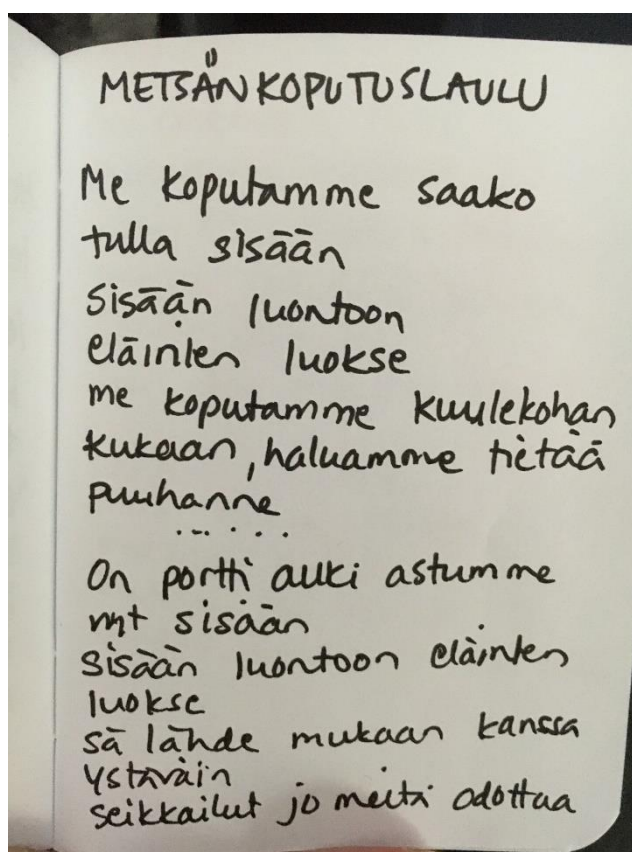 METSÄNKOPUTUSLAULU
Me koputamme saako
tulla sisään
sisään luontoon
eläinten luokse
me koputamme kuulekohan
kukaan, haluamme tietää
puuhanne
......
On portti auki astumme
nyt sisään
sisään luontoon eläinten
luokse
sä lähde mukaan kanssa
ystäväin
seikkailut jo meitä odottaa